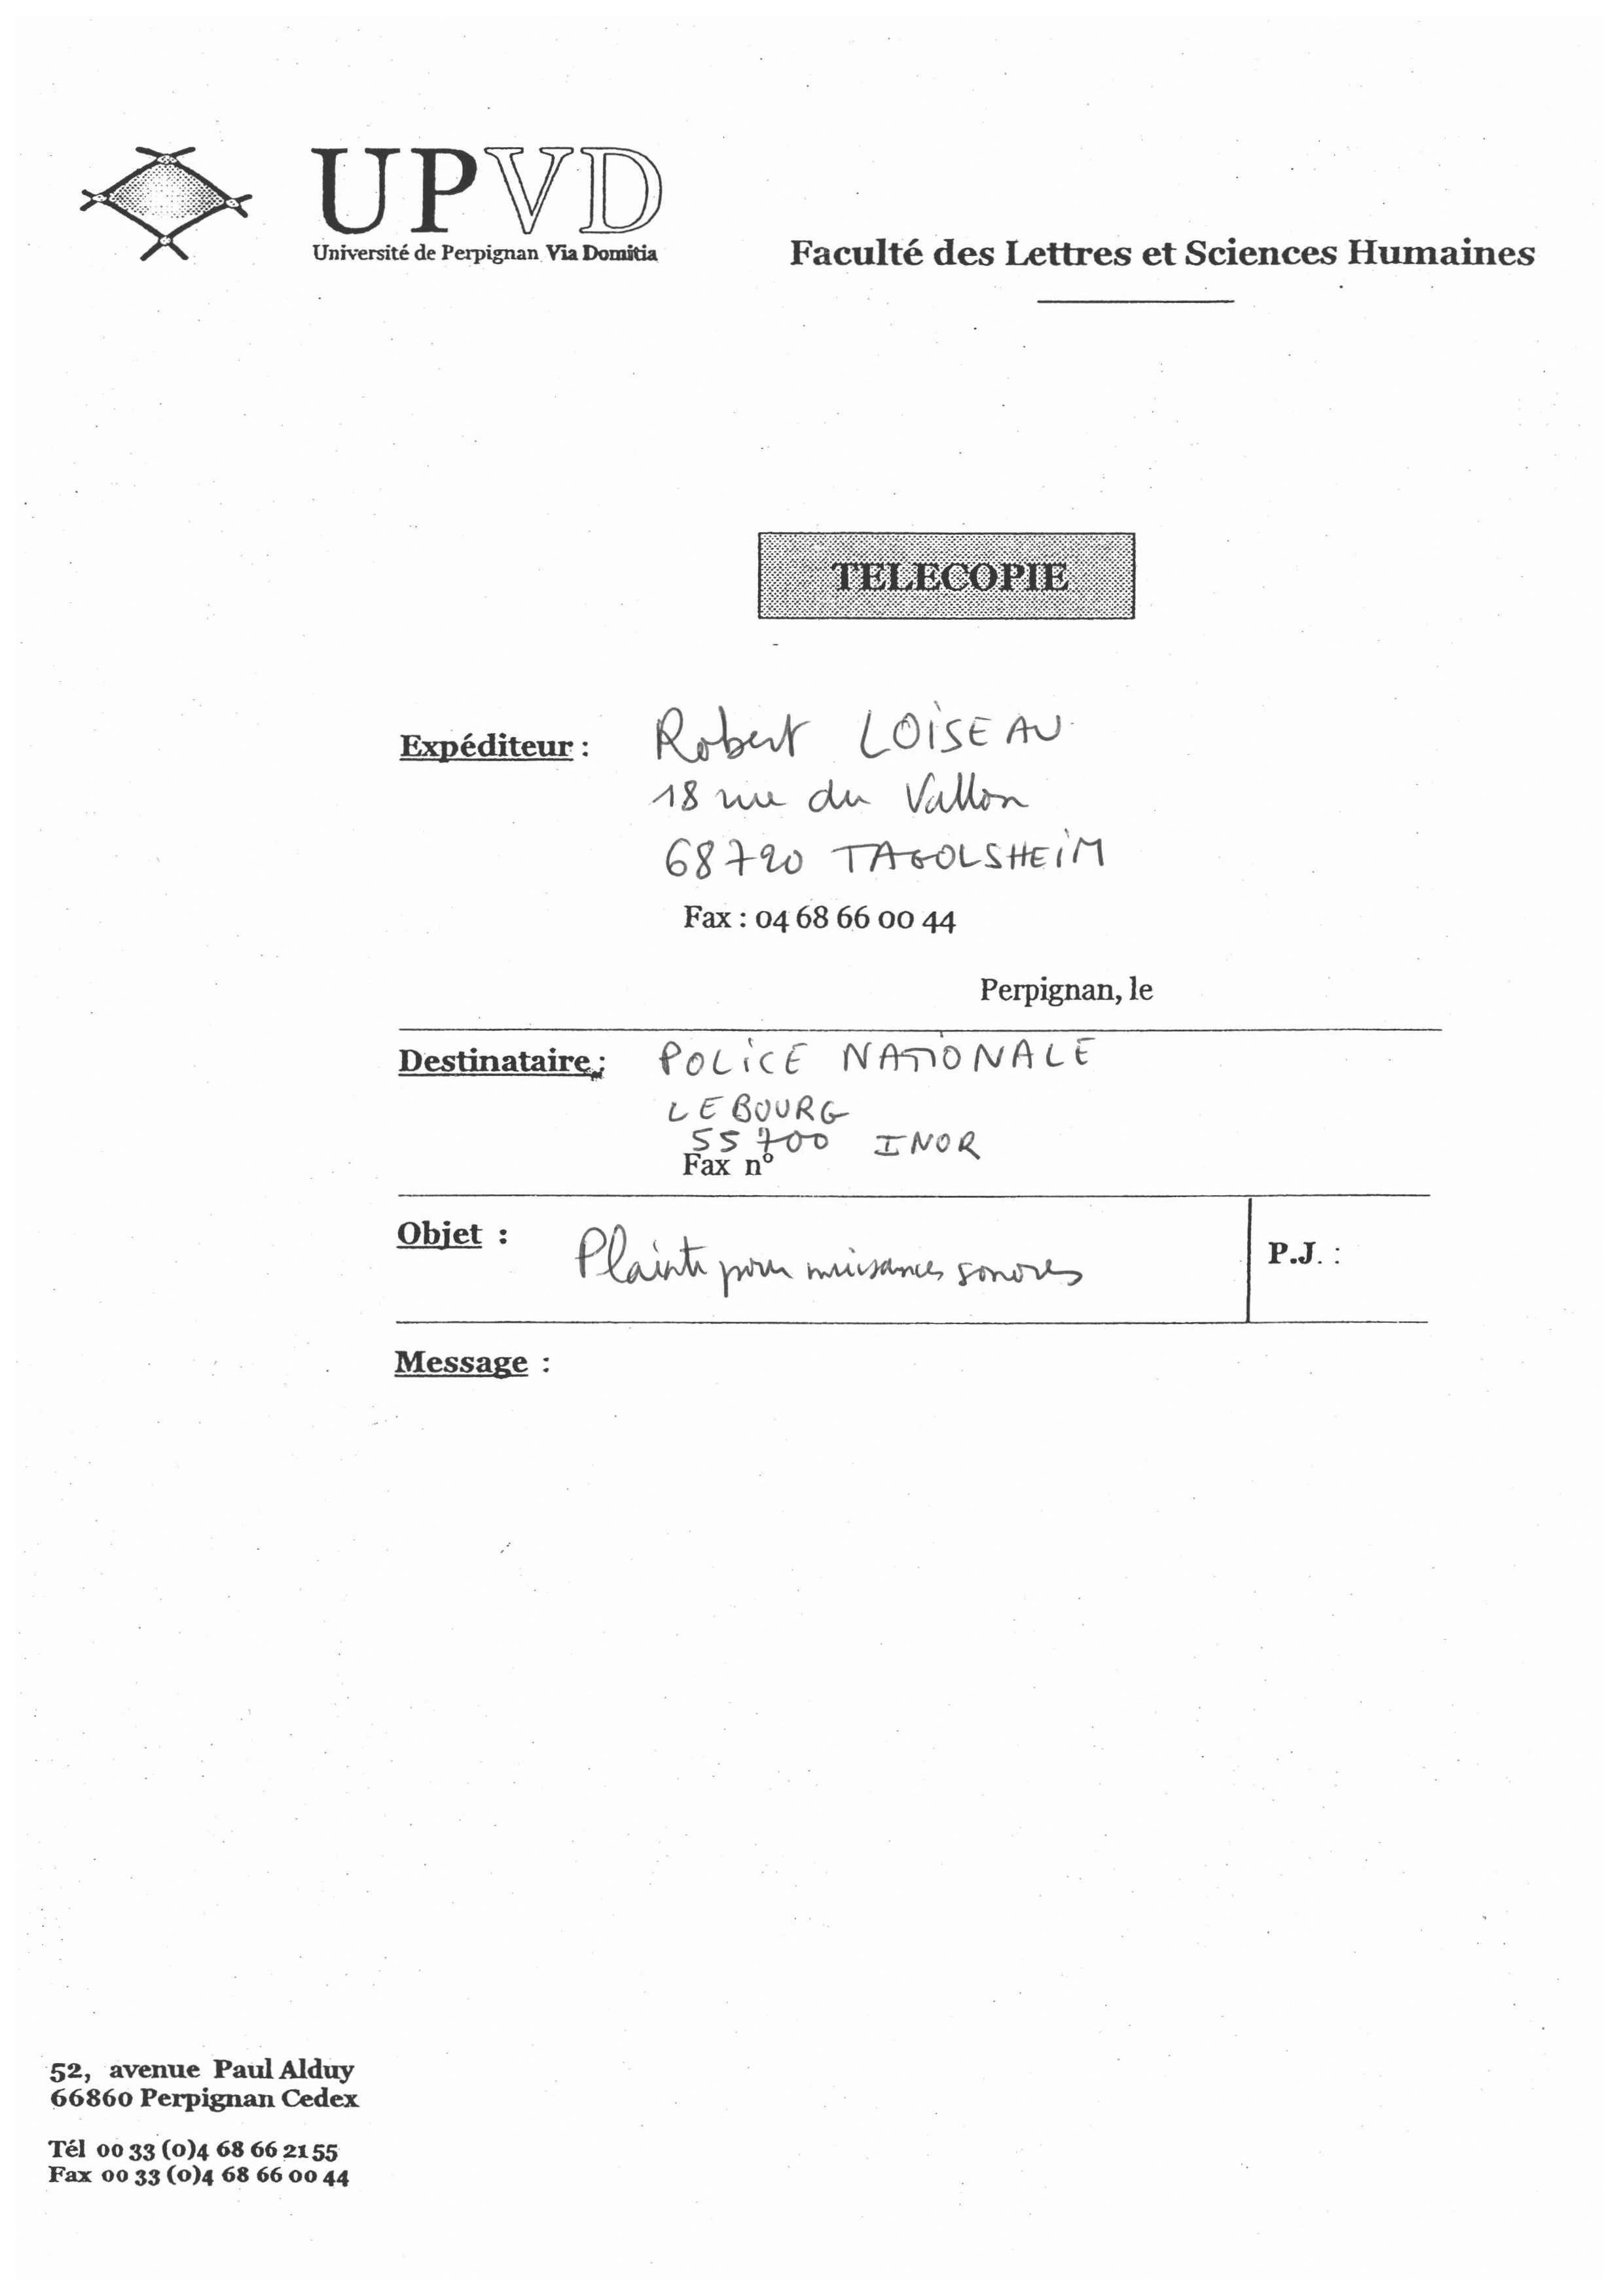 UPVD
Université de Perpignan Via Domitia
Faculté des Lettres et Sciences Humaines
TELECOPIE
Expéditeur : Robert LOISEAU
18 rue du Vallon
68720 TAGOLSHEIM
Fax : 04 68 66 00 44
Perpignan, le
Destinataire : POLICE NATIONALE
LE BOURG
55700 INOR
Fax n°
Objet : Plainte pour nuisances sonores
P.J. :
Message :
52, avenue Paul Alduy
66860 Perpignan Cedex
Tél 00 33 (0)4 68 66 21 55
Fax 00 33 (0)4 68 66 00 44